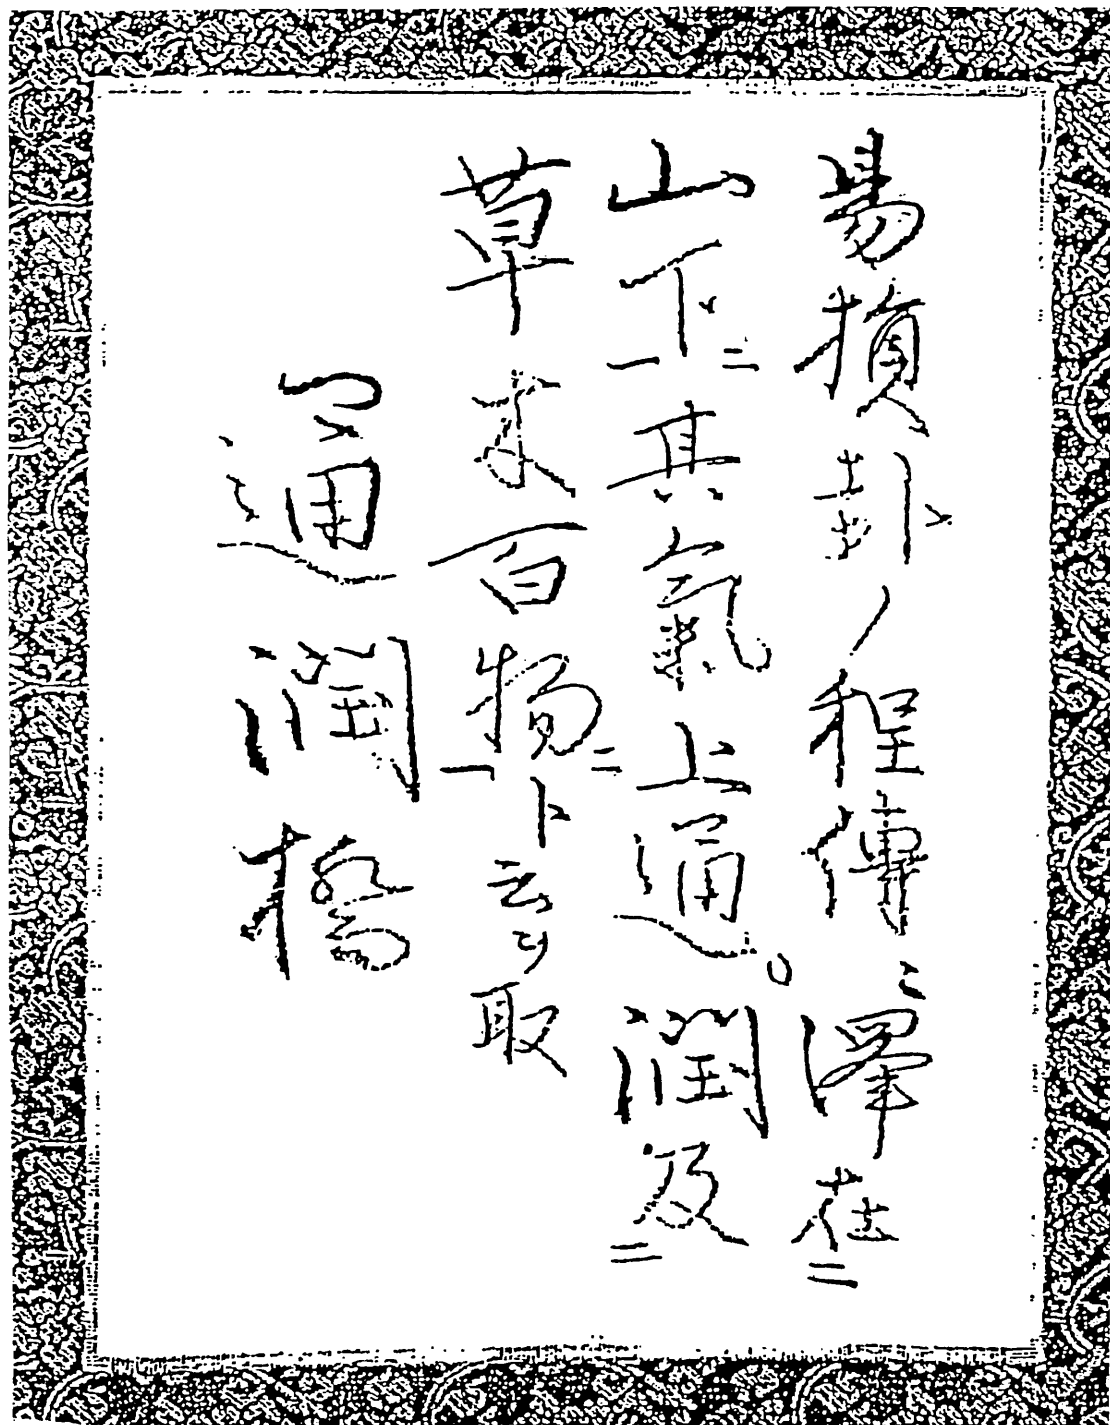 易損卦ノ程傳ニ澤在二
山下ニ一其氣上通。潤及二
草木百物ニ一ト云ヲ取
通潤橋